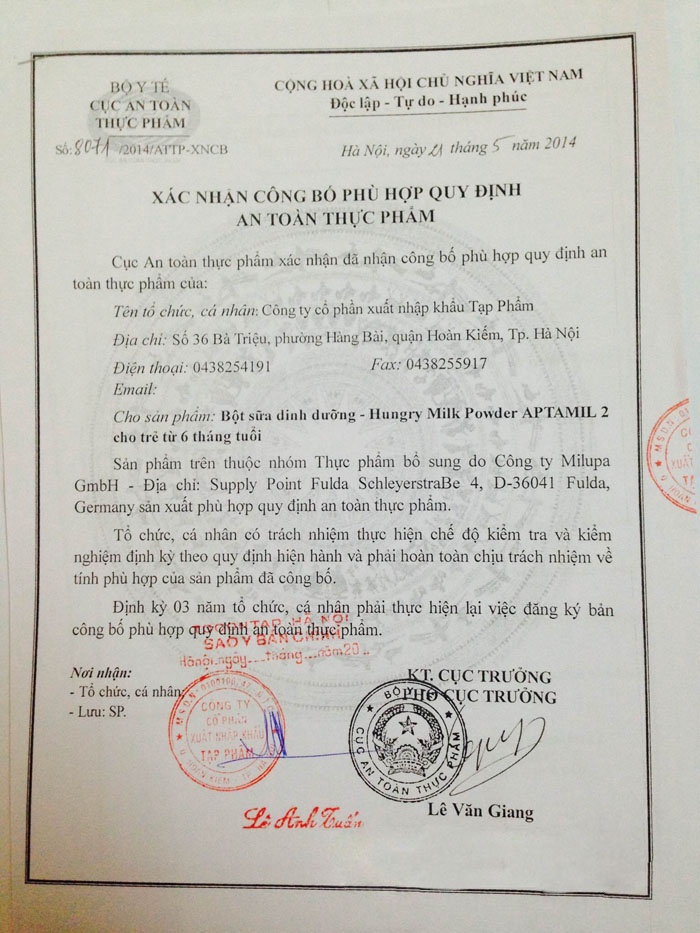 BỘ Y TẾ
CỤC AN TOÀN
THỰC PHẨM
Số: 8071 /2014/ATTP-XNCB
CỘNG HOÀ XÃ HỘI CHỦ NGHĨA VIỆT NAM
Độc lập - Tự do - Hạnh phúc
Hà Nội, ngày 21 tháng 5 năm 2014
XÁC NHẬN CÔNG BỐ PHÙ HỢP QUY ĐỊNH
AN TOÀN THỰC PHẨM
Cục An toàn thực phẩm xác nhận đã nhận công bố phù hợp quy định an
toàn thực phẩm của:
Tên tổ chức, cá nhân: Công ty cổ phần xuất nhập khẩu Tạp Phẩm
Địa chỉ: Số 36 Bà Triệu, phường Hàng Bài, quận Hoàn Kiếm, Tp. Hà Nội
Điện thoại: 0438254191 Fax: 0438255917
Email:
Cho sản phẩm: Bột sữa dinh dưỡng - Hungry Milk Powder APTAMIL 2
cho trẻ từ 6 tháng tuổi
Sản phẩm trên thuộc nhóm Thực phẩm bổ sung do Công ty Milupa
GmbH - Địa chỉ: Supply Point Fulda SchleyerstraBe 4, D-36041 Fulda,
Germany sản xuất phù hợp quy định an toàn thực phẩm.
Tổ chức, cá nhân có trách nhiệm thực hiện chế độ kiểm tra và kiểm
nghiệm định kỳ theo quy định hiện hành và phải hoàn toàn chịu trách nhiệm về
tính phù hợp của sản phẩm đã công bố.
Định kỳ 03 năm tổ chức, cá nhân phải thực hiện lại việc đăng ký bản
công bố phù hợp quy định an toàn thực phẩm.
HÀ NỘI
SAO Y BẢN CHÍNH
Hà nội, ngày....tháng....năm 20...
Nơi nhận:
- Tổ chức, cá nhân
- Lưu: SP.
KT. CỤC TRƯỞNG
PHÓ CỤC TRƯỞNG
CÔNG TY
CỔ PHẦN
XUẤT NHẬP KHẨU
TẠP PHẨM
BỘ Y TẾ
CỤC AN TOÀN THỰC PHẨM
Lê Văn Giang
Lê Anh Tuấn